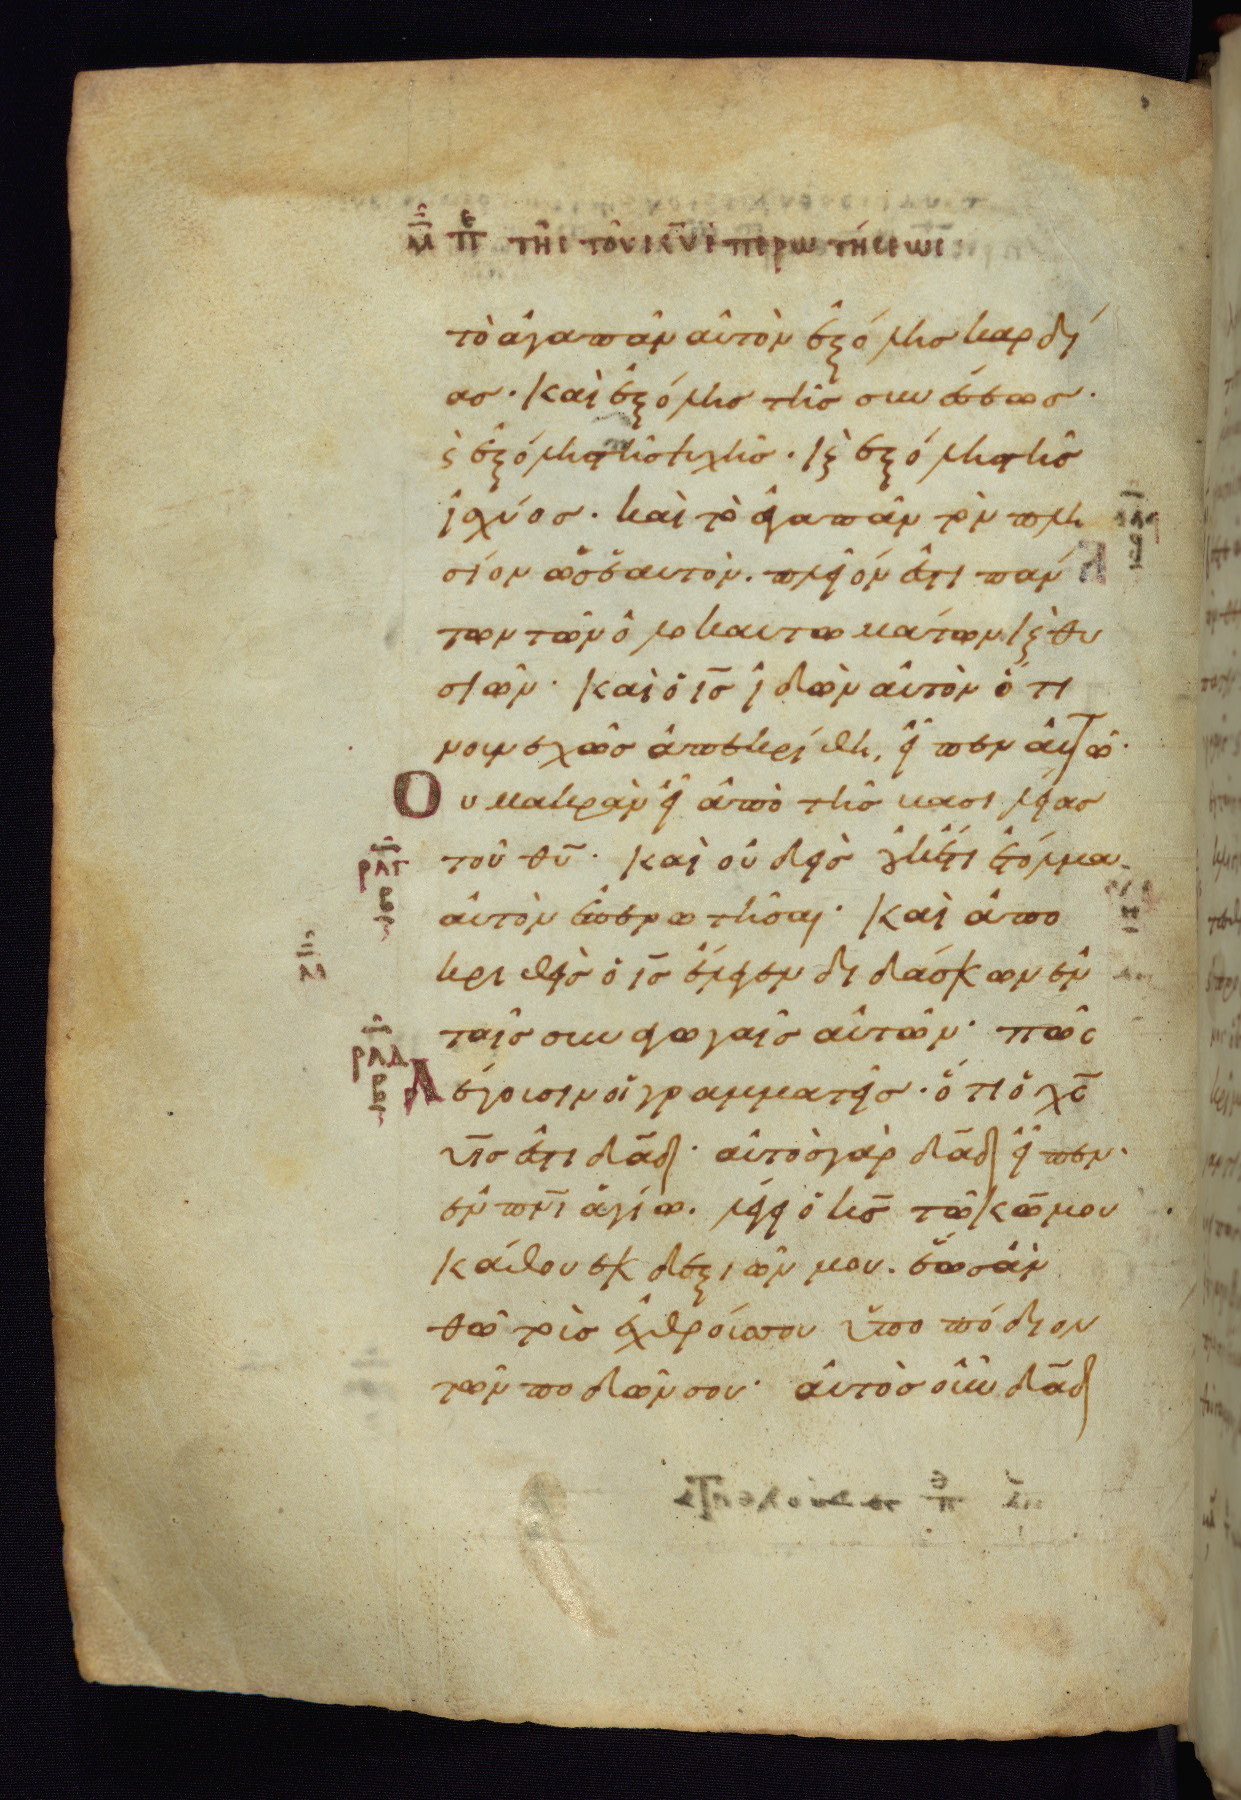 μ̅ π̅ε τῆς τοῦ κ̅υ ἐπερωτήσεως
τὸ ἀγαπᾶν αὐτὸν ἐξ ὅλης καρδί
ας· καὶ ἐξ ὅλης τῆς συνέσεως·
ϗ ἐξ ὅλης τῆς ψυχῆς· ϗ ἐξ ὅλης τῆς
ἰσχύος· καὶ τὸ ἀγαπᾶν τὸν πλη
σίον ὡς ἑαυτὸν· πλεῖόν ἐστι πάν
των τῶν ὁλοκαυτωμάτων ϗ θυ
σιῶν· καὶ ὁ ι̅ς ἰδὼν αὐτὸν ὅτι
νουνεχῶς ἀπεκρίθη, εἶπεν αὐτῶ·
Οὐ μακρὰν εἶ ἀπὸ τῆς βασιλείας
ρλγ
β
τοῦ θ̅υ· καὶ οὐδεὶς οὐκέτι ἐτόλμα
αὐτὸν ἐπερωτῆσαι· καὶ ἀπο
κριθεὶς ὁ ι̅ς ἔλεγεν διδάσκων ἐν
ταῖς συναγωγαῖς αὐτῶν· πῶς
ρλδ
β
λέγουσιν οἱ γραμματεῖς· ὅτι ὁ χ̅ς
υ̅ς ἐστι δ̅α̅δ· αὐτὸς γὰρ δ̅α̅δ εἶπεν·
ἐν π̅ν̅ι ἁγίω· λέγει ὁ κ̅ς τῶ κ̅ω μου
κάθου ἐκ δεξιῶν μου· ἕως ἂν
θῶ τοὺς ἐχθρούς σου ὑποπόδιον
τῶν ποδῶν σου· αὐτὸς οὖν δ̅α̅δ